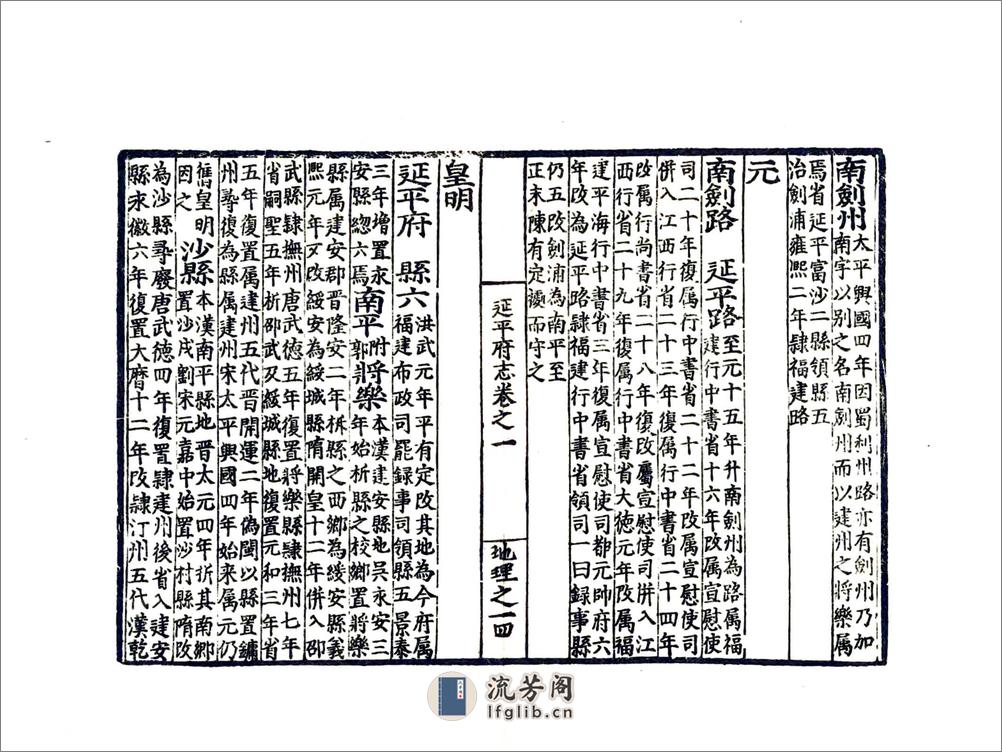 南劍州太平興國四年因蜀利州路亦有劍州乃加
南字以別之名南劍州而以建州之將樂屬
焉省延平富沙二縣領縣五
治劍浦雍熙二年隷福建路
元
南劍路 延平路至元十五年升南劍州為路属福
建行中書省十六年改属宣慰使
司二十年復属行中書省二十二年改属宣慰使司
併入江西行省二十三年復属行中書省二十四年
改属行尚書省二十八年復改屬宣慰使司併入江
西行省二十九年復属行中書省大徳元年改属福
建平海行中書省三年復属宣慰使司都元帥府六
年改為延平路隷福建行中書省領司一曰録事縣
仍五改劍浦為南平至
正末陳有定據而守之
延平府志卷之一
地理之一四
皇明
延平府 縣六洪武元年平有定改其地為今府属
福建布政司罷録事司領縣五景泰
三年增置永
安縣總六焉南平附郭將樂本漢建安縣地吳永安三
年始析縣之校鄉置將樂
縣属建安郡晉隆安二年析縣之西鄉為綏安縣義
熙元年又改綏安為綏城縣隋開皇十二年併入邵
武縣隷撫州唐武徳五年復置將樂縣隷撫州七年
省嗣聖五年析邵武及綏城縣地復置元和三年省
五年復置属建州五代晋開運二年偽閩以縣置鏞
州尋復為縣属建州宋太平興國四年始来属元仍
舊皇明
因之 沙縣本漢南平縣地晋太元四年析其南鄉
置沙戍劉宋元嘉中始置沙村縣隋改
為沙縣尋廢唐武徳四年復置隷建州後省入建安
縣永徽六年復置大曆十二年改隷汀州五代漢乾
流芳阁
lfglib.cn